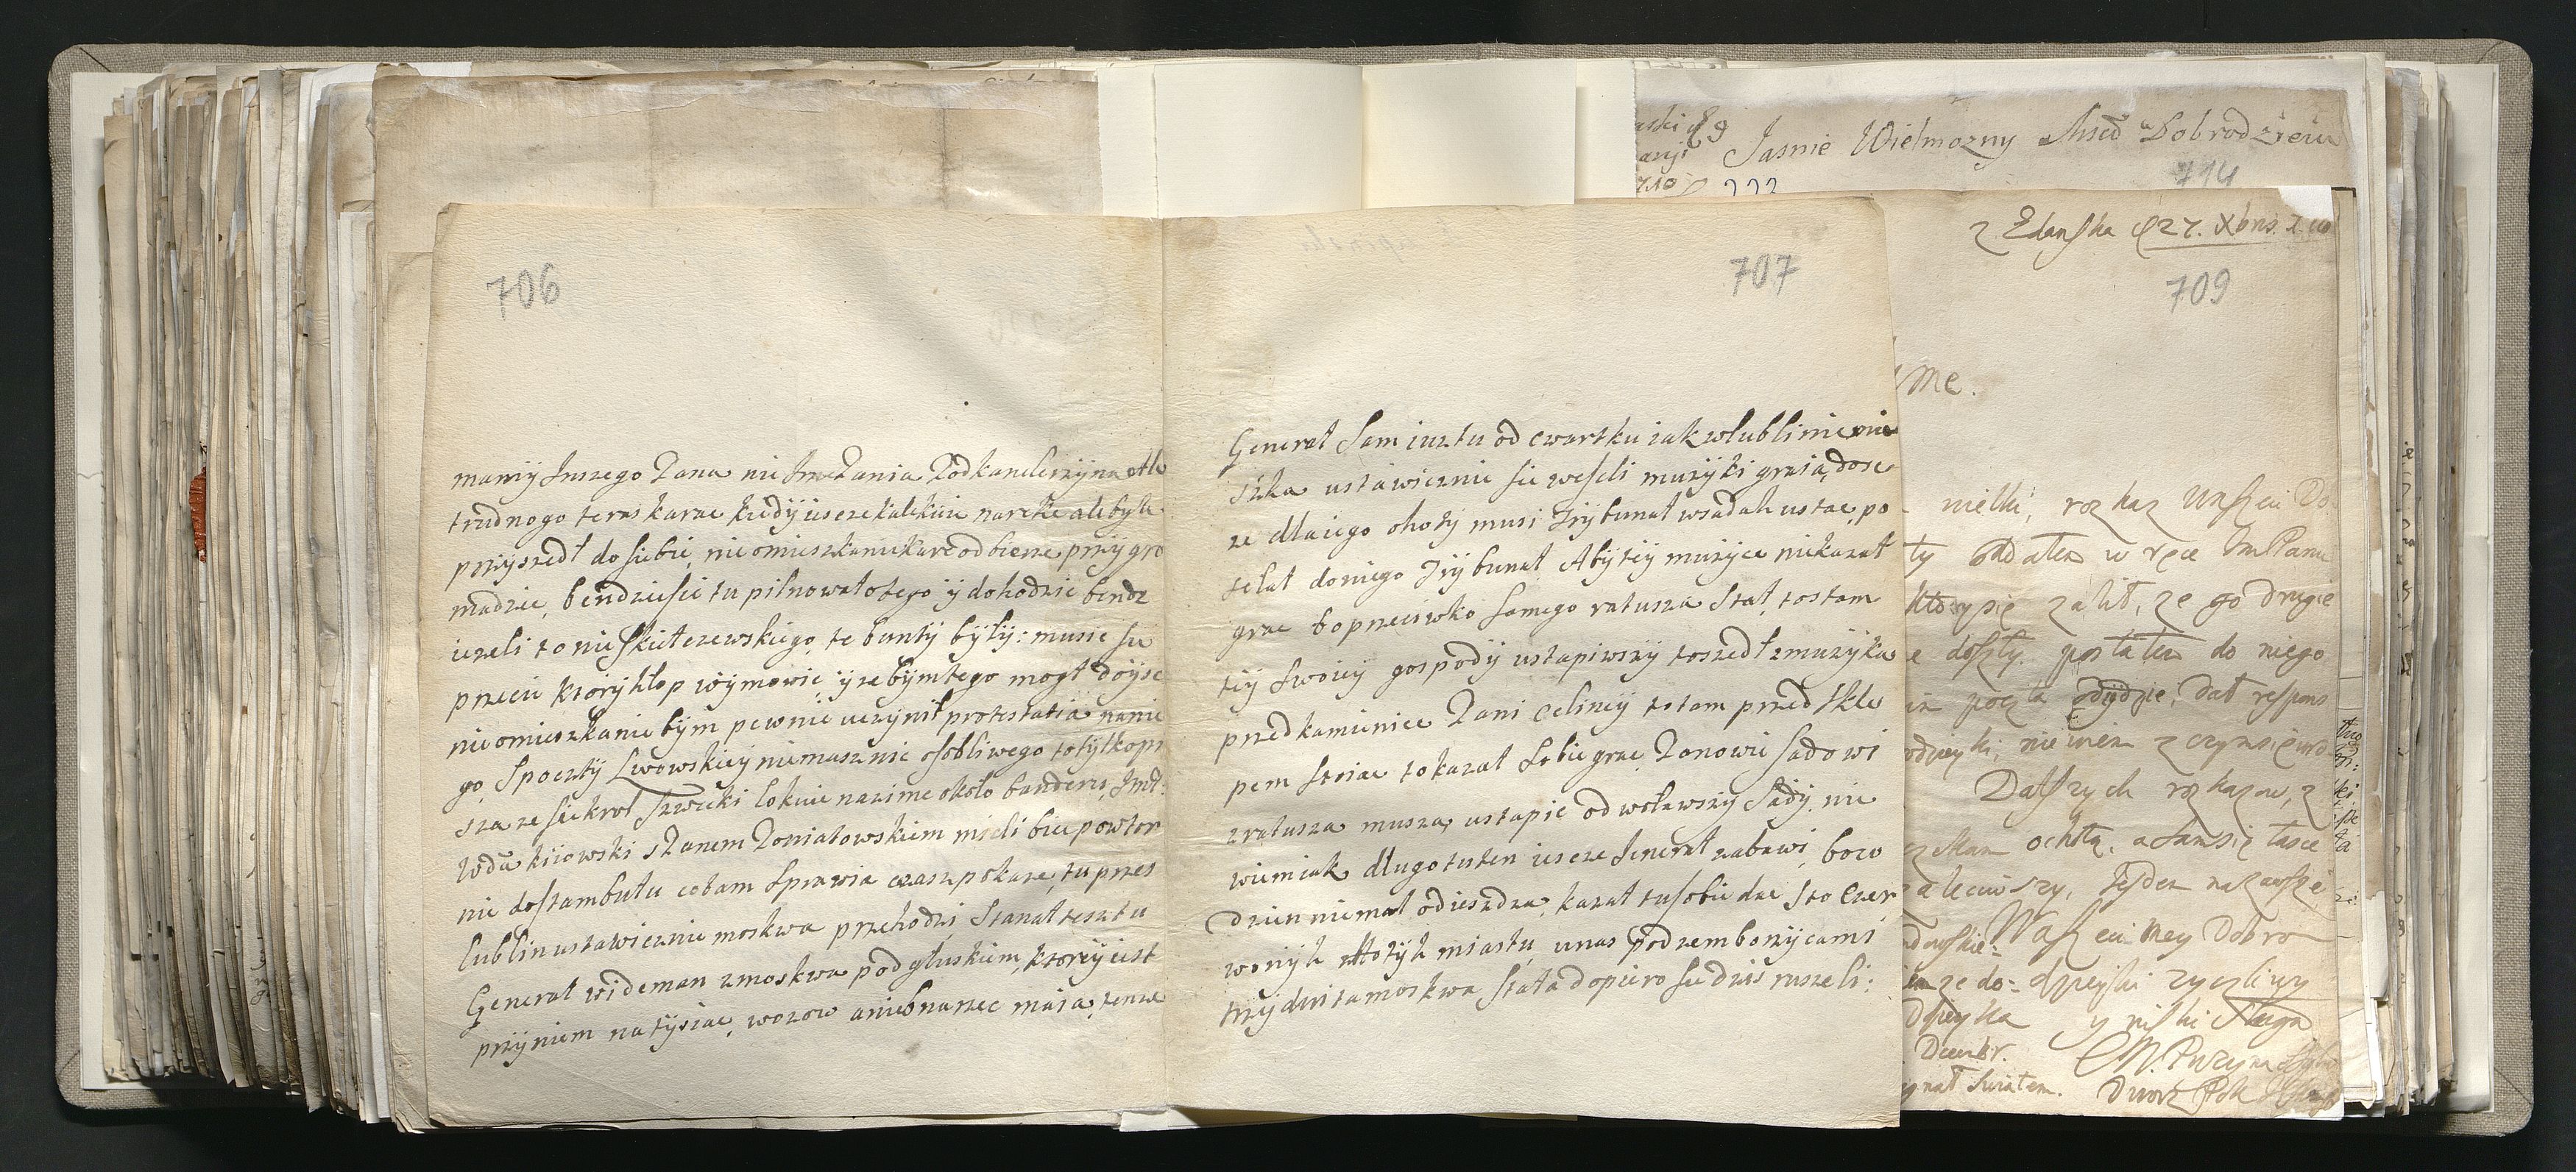 706
mamÿ Inszego Pana nie ImePania Podkanclerzÿna ale
trudno go teras karac kiedÿ iescze kalekuie na rekie ale bÿle
przÿszedł do siebie, nie omieszkanie kare odbierze przÿ gro
madzie, bendzie sie tu pilnowało tego ÿ dohodzic bendz
iezeli to nie Skutczewskiego, te buntÿ bÿłÿ: musie sie
przecie ktorÿ hłop wÿmowic, ÿ zebÿm tego mogł doÿsc
nieomieszkanie bÿm pewnie uczÿnił protestatia na nie
go, Spocztÿ Lwowskieÿ niemasz nic osobliwego to tÿlko pi
sza ze sie krol Szwecki lokuie na zime około banderu, Imć:
Wda kiiowski s Panem Poniatowskiem mieli bic powtor
nie do stambułu co tam Sprawia czasz pokaze, tu przes
lublin ustawicznie moskwa przehodzi, Stanał tesz tu
Generał wideman z moskwa pod głuskiem, ktoreÿ iest
przÿ niem na tÿsiac, wozow aniebnarzec maia, ten ze
707
Generał Sam iusz tu od czwartku iak w lublinie mie
szka ustawicznie sie weseli muzÿki graia, dosc
ze dla iego ohotÿ musi Trÿbunał w sadah ustac, po
sełał do niego Trÿbunał Abÿ teÿ muzÿce nie kazał
grac bo przeciwko samego ratusza Stał, to s tam
teÿ Swoieÿ gospodÿ ustapiwszÿ to szedł z muzÿka
przed kamienice Pani Celineÿ to tam przed Skle
pem stoiac to kazał Sobie grac, Panowie Sadowi
z ratusza musza, ustapic odwoławszÿ Sadÿ, nie
wiem iak długo tu ten iescze Ienerał zabawi, bo co
dzien niemal odiezdza, kazał tu sobie dac Sto Czer
wonÿh złotÿh miastu, u nas pod zemborzÿcami
trzÿ dni ta moskwa stała dopiero sie dzis ruszeli:
Jasnie Wielmozny Msci Dobrodzieiu
714
z Gdanska d 27. Xbris.
709
Me.
wielki, rozkaz Waszeci Do
ty oddałem w ręce ImPana
ktory się zalił, ze go drugie
e doszły. posłałem do niego
poczta odydzie, dał respons
niewiem z czym się
Dalszych rozkazow, z
ochotą, a sam się łasce
zaleciwszy, iestem na zawsze
Waszeci mey Dobro
dzieyki zyczliwy
y niski sługa